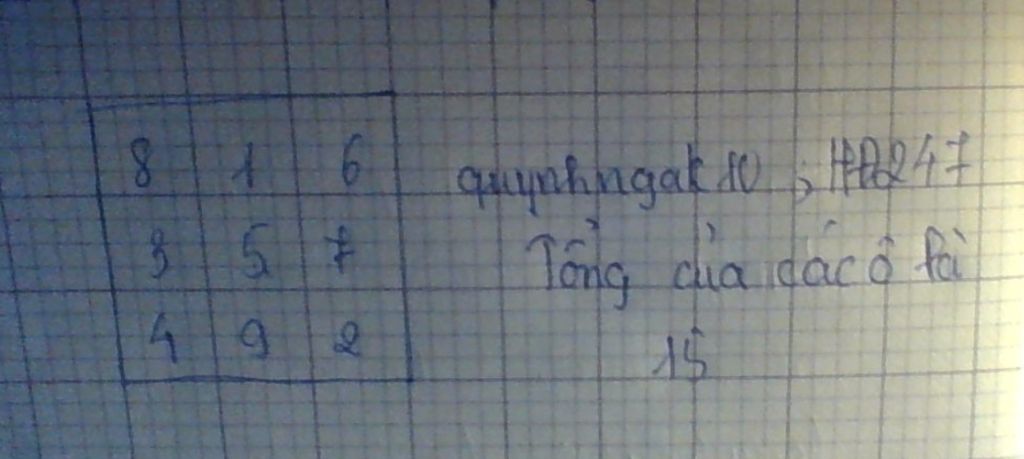 8 1 6
3 5 7
4 9 2
quynhngak10 ; HD247
Tổng của các ô là
15